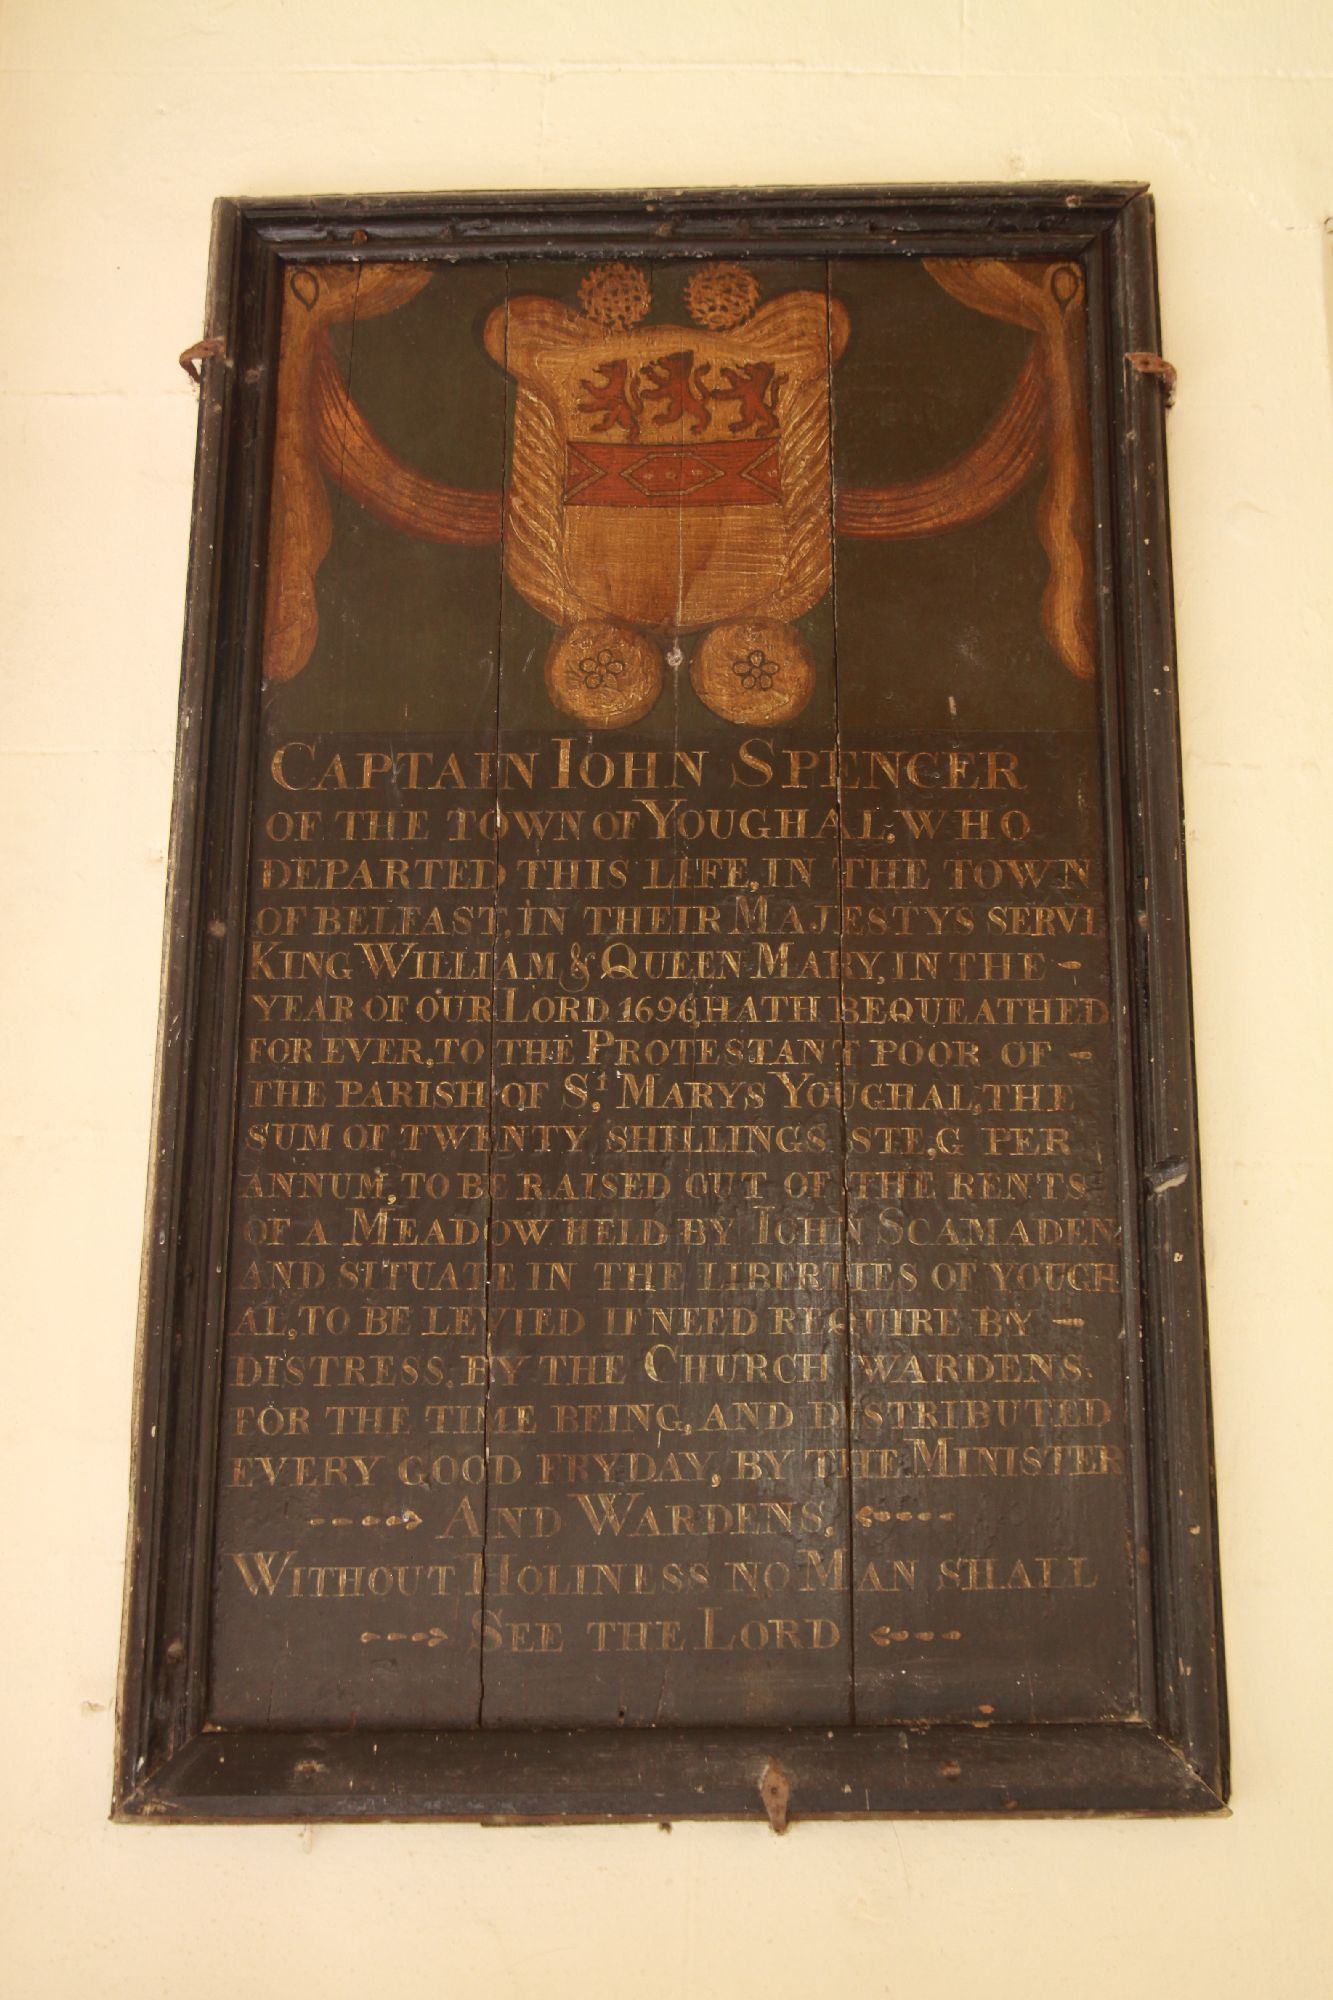 CAPTAIN IOHN SPENCER
OF THE TOWN OF YOUGHAL, WHO
DEPARTED THIS LIFE, IN THE TOWN
OF BELFAST, IN THEIR MAJESTYS SERVI
KING WILLIAM & QUEEN MARY, IN THE -
YEAR OF OUR LORD 1696, HATH BEQUEATHED
FOR EVER, TO THE PROTESTANT POOR OF -
THE PARISH OF St. MARYS YOUGHAL, THE
SUM OF TWENTY SHILLINGS STE,G PER
ANNUM, TO BE RAISED OUT OF THE RENTS
OF A MEADOW HELD BY IOHN SCAMADEN
AND SITUATE IN THE LIBERTIES OF YOUGH
AL, TO BE LEVIED IF NEED REQUIRE BY -
DISTRESS. BY THE CHURCH WARDENS.
FOR THE TIME BEING, AND DISTRIBUTED
EVERY GOOD FRYDAY, BY THE MINISTER
AND WARDENS.
WITHOUT HOLINESS NO MAN SHALL
SEE THE LORD